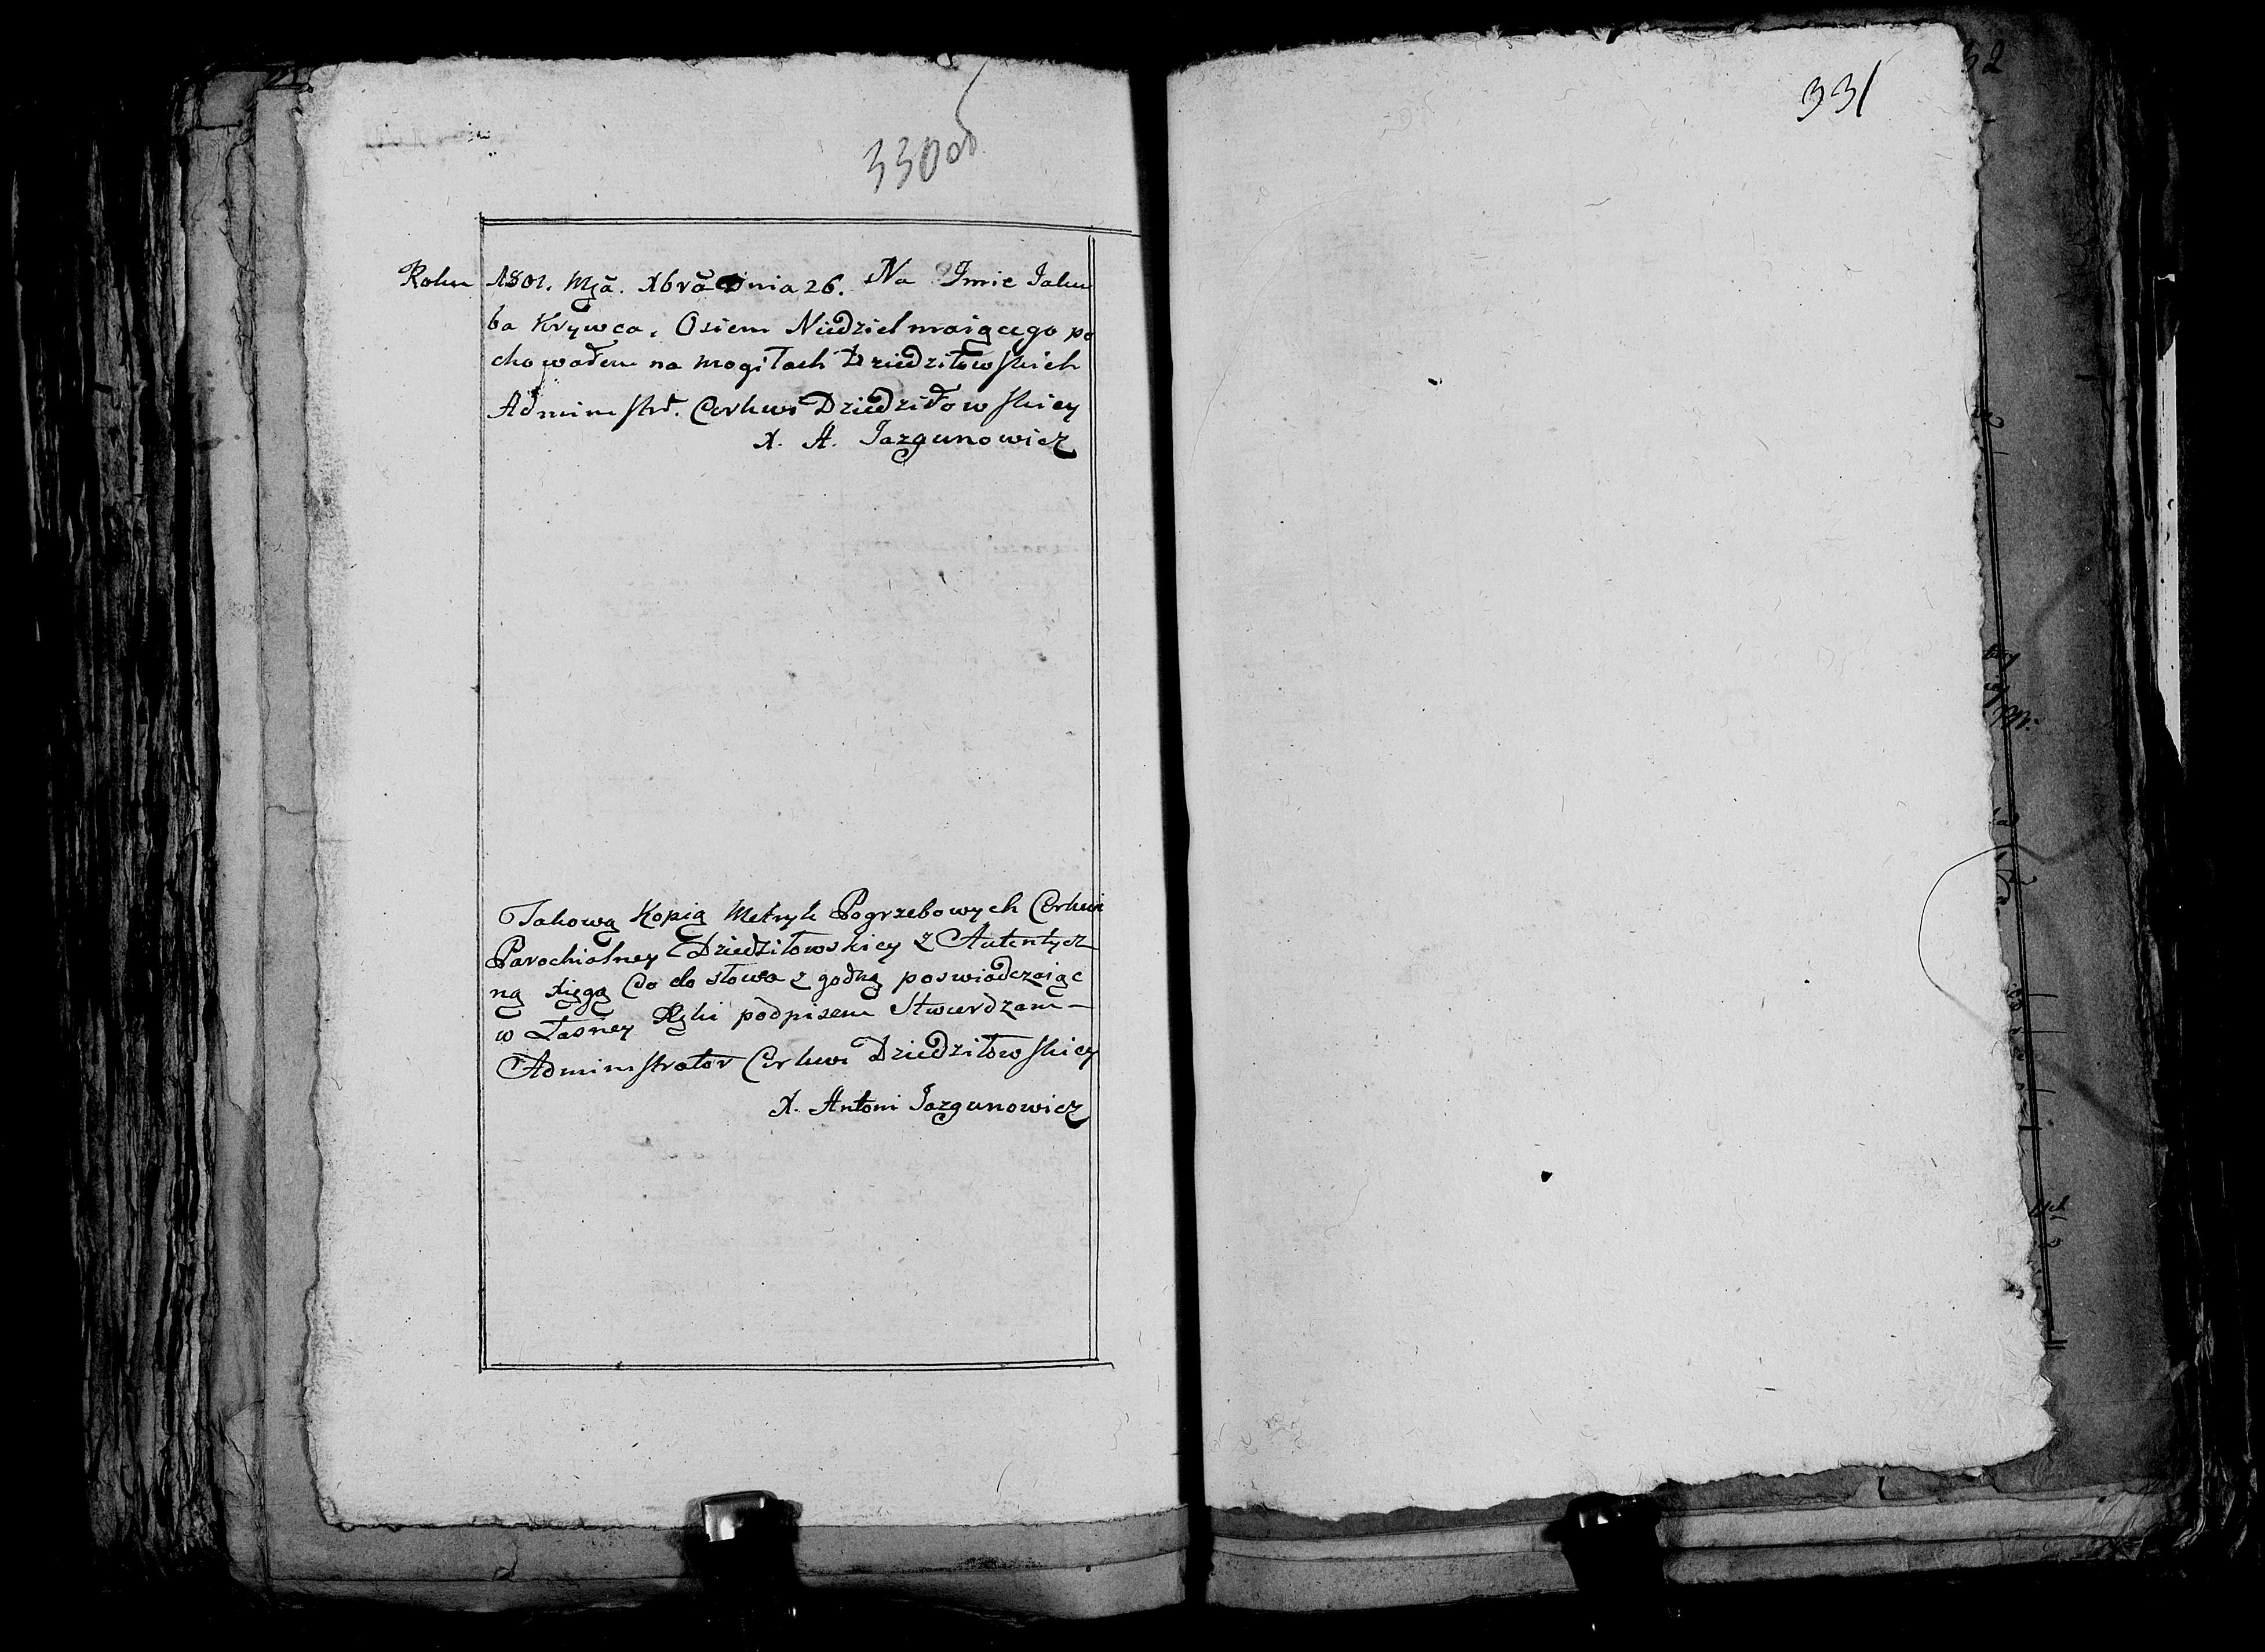 330об
Roku 1801. Mcā. Xbrā Dnia 26. Na Jmie Jaku
ba Krywca, Osiem Niedziel maiącego po
chowałem na mogiłach Dziedziłowskich
Administr. Cerkwi Dziedziłowskiey
X. A. Jazgunowicz
Takową Kopią Metryk Pogrzebowych Cerkwi
Parochialney Dziedziłowskiey z Autentycz
ną Xięgą Co do słowa zgodną poswiadczaiąc
własney Ręki podpisem Stwierdzam —
Administrator Cerkwi Dziedziłowskiey
X. Antoni Jazgunowicz
331
32